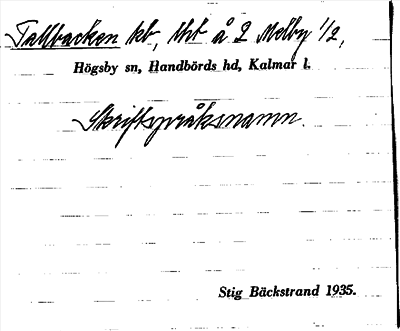 Tallbacken lkt, tht å 2 Melby 1/2,
Högsby sn, Handbörds hd, Kalmar l.
Skriftspråksnamn.
Stig Bäckstrand 1935.